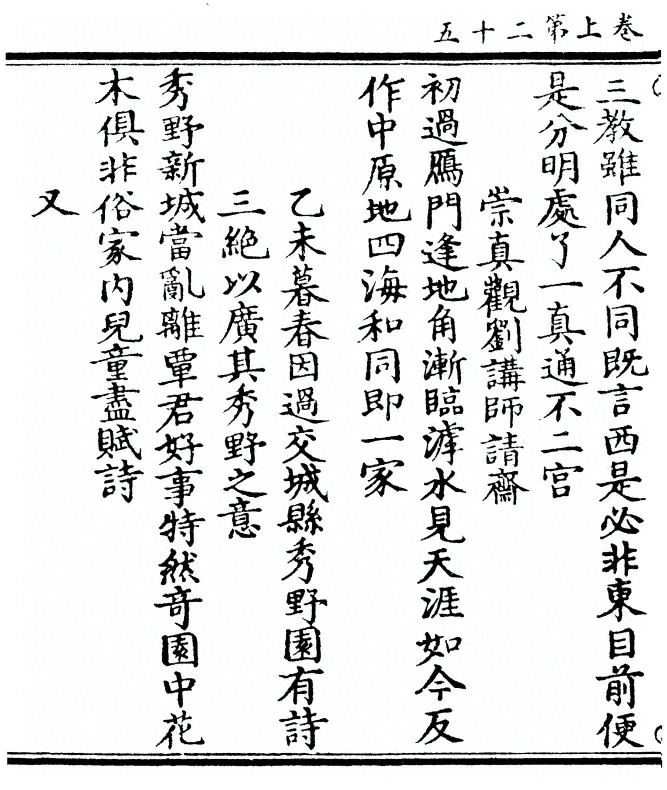 卷上第二十五
三教雖同人不同既言西是必非東目前便
是分明處了一真通不二宮
崇真觀劉講師請齋
初過鴈門逢地角漸臨滹水見天涯如今反
作中原地四海和同即一家
乙未暮春因過交城縣秀野園有詩
三絶以廣其秀野之意
秀野新城當亂離覃君好事特然竒園中花
木俱非俗家内兒童盡賦詩
又